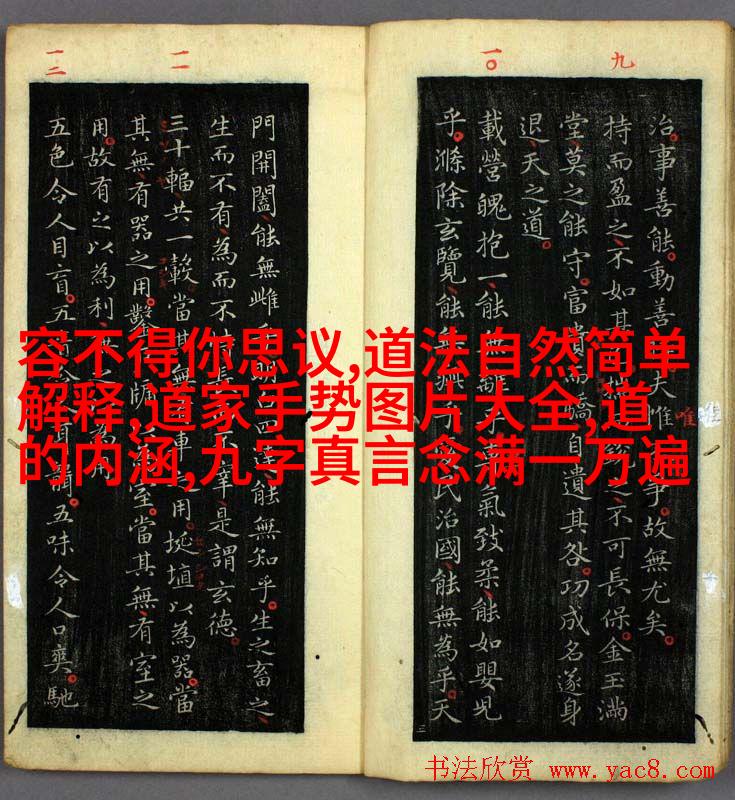 九
治。事善能。動善夫唯爭。故無尤矣。
唯
持而盈之、不如其揣銳之、不可長保。金玉滿
堂、莫之能守。富貴而驕、自遺其咎。功成名遂身
退、天之道。
一〇
載營魄抱一、能無離乎。氣致柔、能如嬰兒
乎。滌除玄覽、能無疵乎。民治國、能無為乎。天
門開闔、能無雌乎。明白四達、能無知乎。生之畜之、
生而不有、為而不恃不宰、是謂玄德。
一一
三十輻、共一轂。當其無、車之用。埏埴以為器。當
其無、有器之用。鑿戶牖以為室。當其無、有室之
用。故有之以為利、無之為用。
一二
五色令人目盲。五音令耳聾。五味令人口爽。馳
容不得你思议,道法自然简单
解释,道家手势图片大全,道
的内涵,九字真言念满一万遍
书法欣赏 www.yac8.com